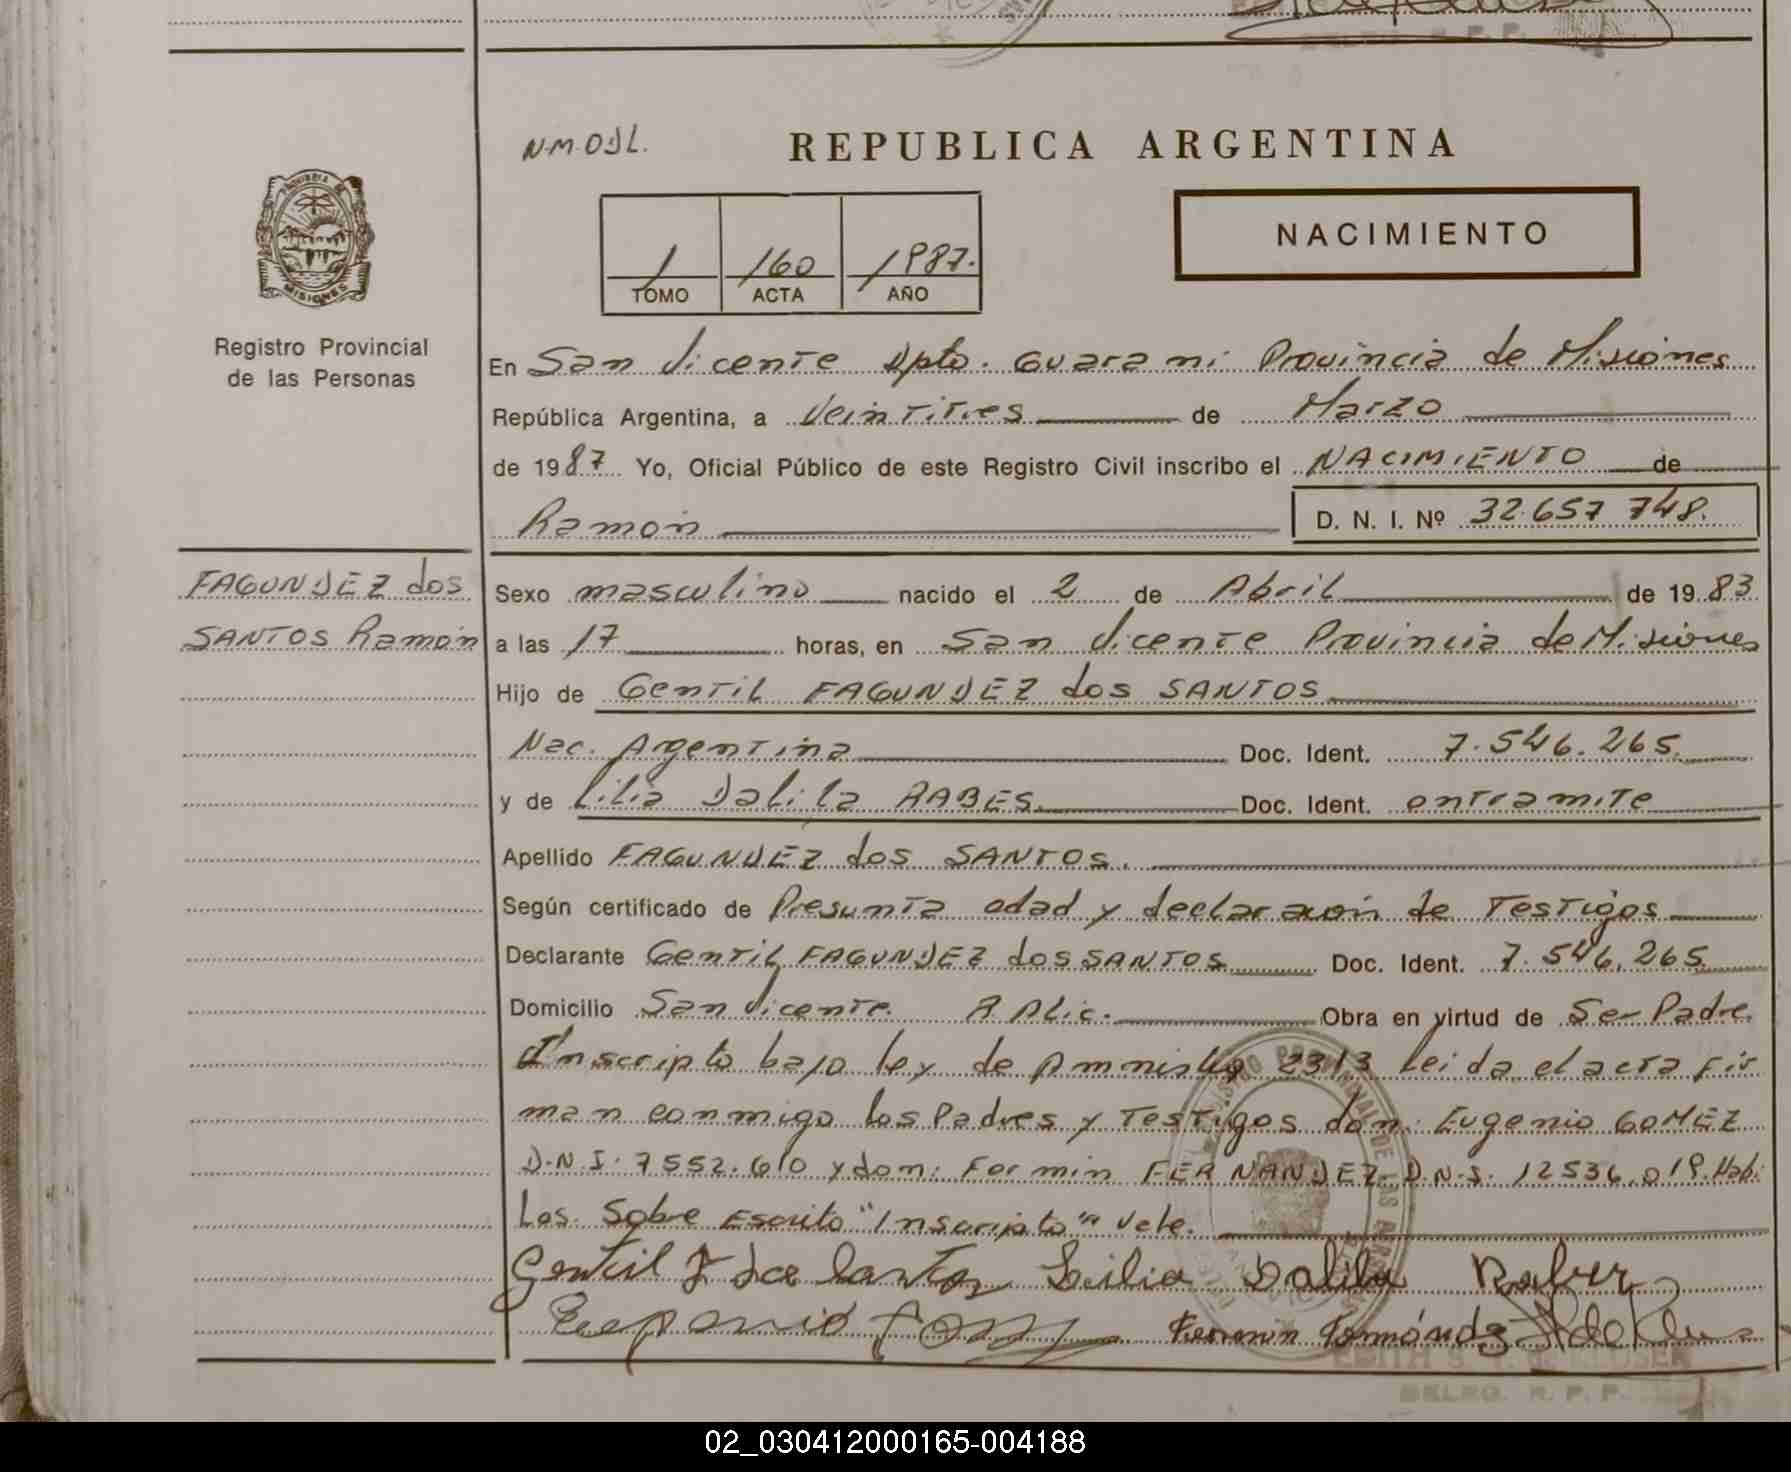 N.M.OJL.
REPUBLICA ARGENTINA
PROVINCIA DE
MISIONES
1 160 1987.
TOMO ACTA AÑO
NACIMIENTO
Registro Provincial
de las Personas
En San Vicente Dpto. Guarani Provincia de Misiones
República Argentina, a Veintitres de Marzo
de 1987 Yo, Oficial Público de este Registro Civil inscribo el NACIMIENTO de
Ramón D. N. I. Nº 32.657 748.
FAGUNDEZ dos
SANTOS Ramón
Sexo masculino nacido el 2 de Abril de 1983
a las 17 horas, en San Vicente Provincia de Misiones
Hijo de Gentil FAGUNDEZ dos SANTOS
Nac. Argentina Doc. Ident. 7.546.265.
y de Lilia Dalila RABES. Doc. Ident. entramite
Apellido FAGUNDEZ dos SANTOS.
Según certificado de Presunta edad y declaración de Testigos
Declarante Gentil FAGUNDEZ dos SANTOS Doc. Ident. 7.546.265
Domicilio San Vicente R Alic. Obra en virtud de Ser Padre
Inscripto bajo ley de Amnistia 2313 leida el acta fir
man conmigo los Padres y Testigos don: Eugenio GOMEZ
D.N.I. 7552.610 y don: Fermin FERNANDEZ D.N.I. 12536.019. Hab:
Los. Sobre Escrito "Inscripto" Vele.
Gentil F dos Santos Lilia Dalila Rabes
Eugenio Fermin
EDITH
DELEG. R. P. P.
02_030412000165-004188